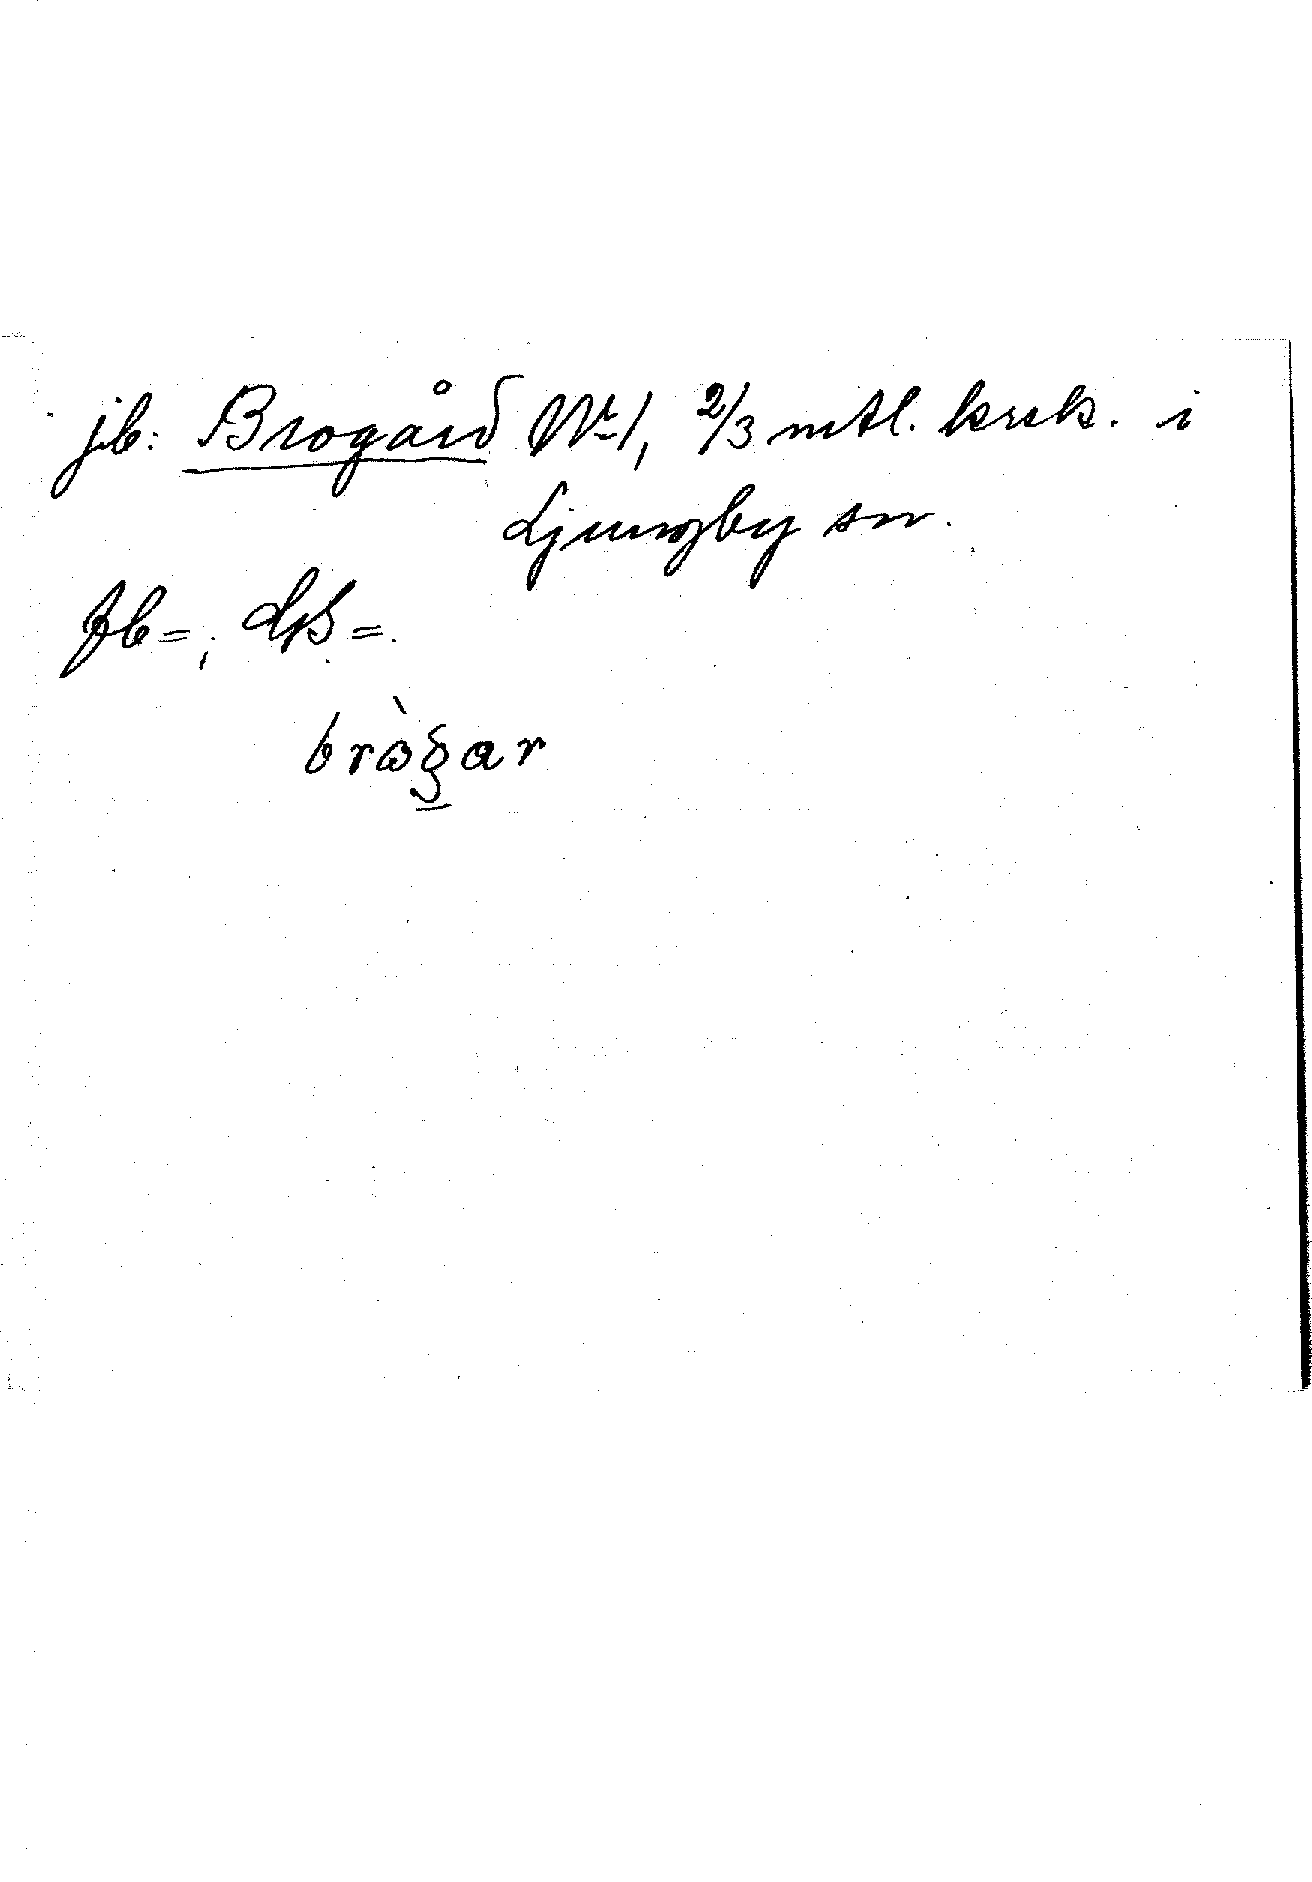 jb: Brogård Nr 1, 2/3 mtl. krsk. i
Ljungby sn.
fb=; GS=.
brògar